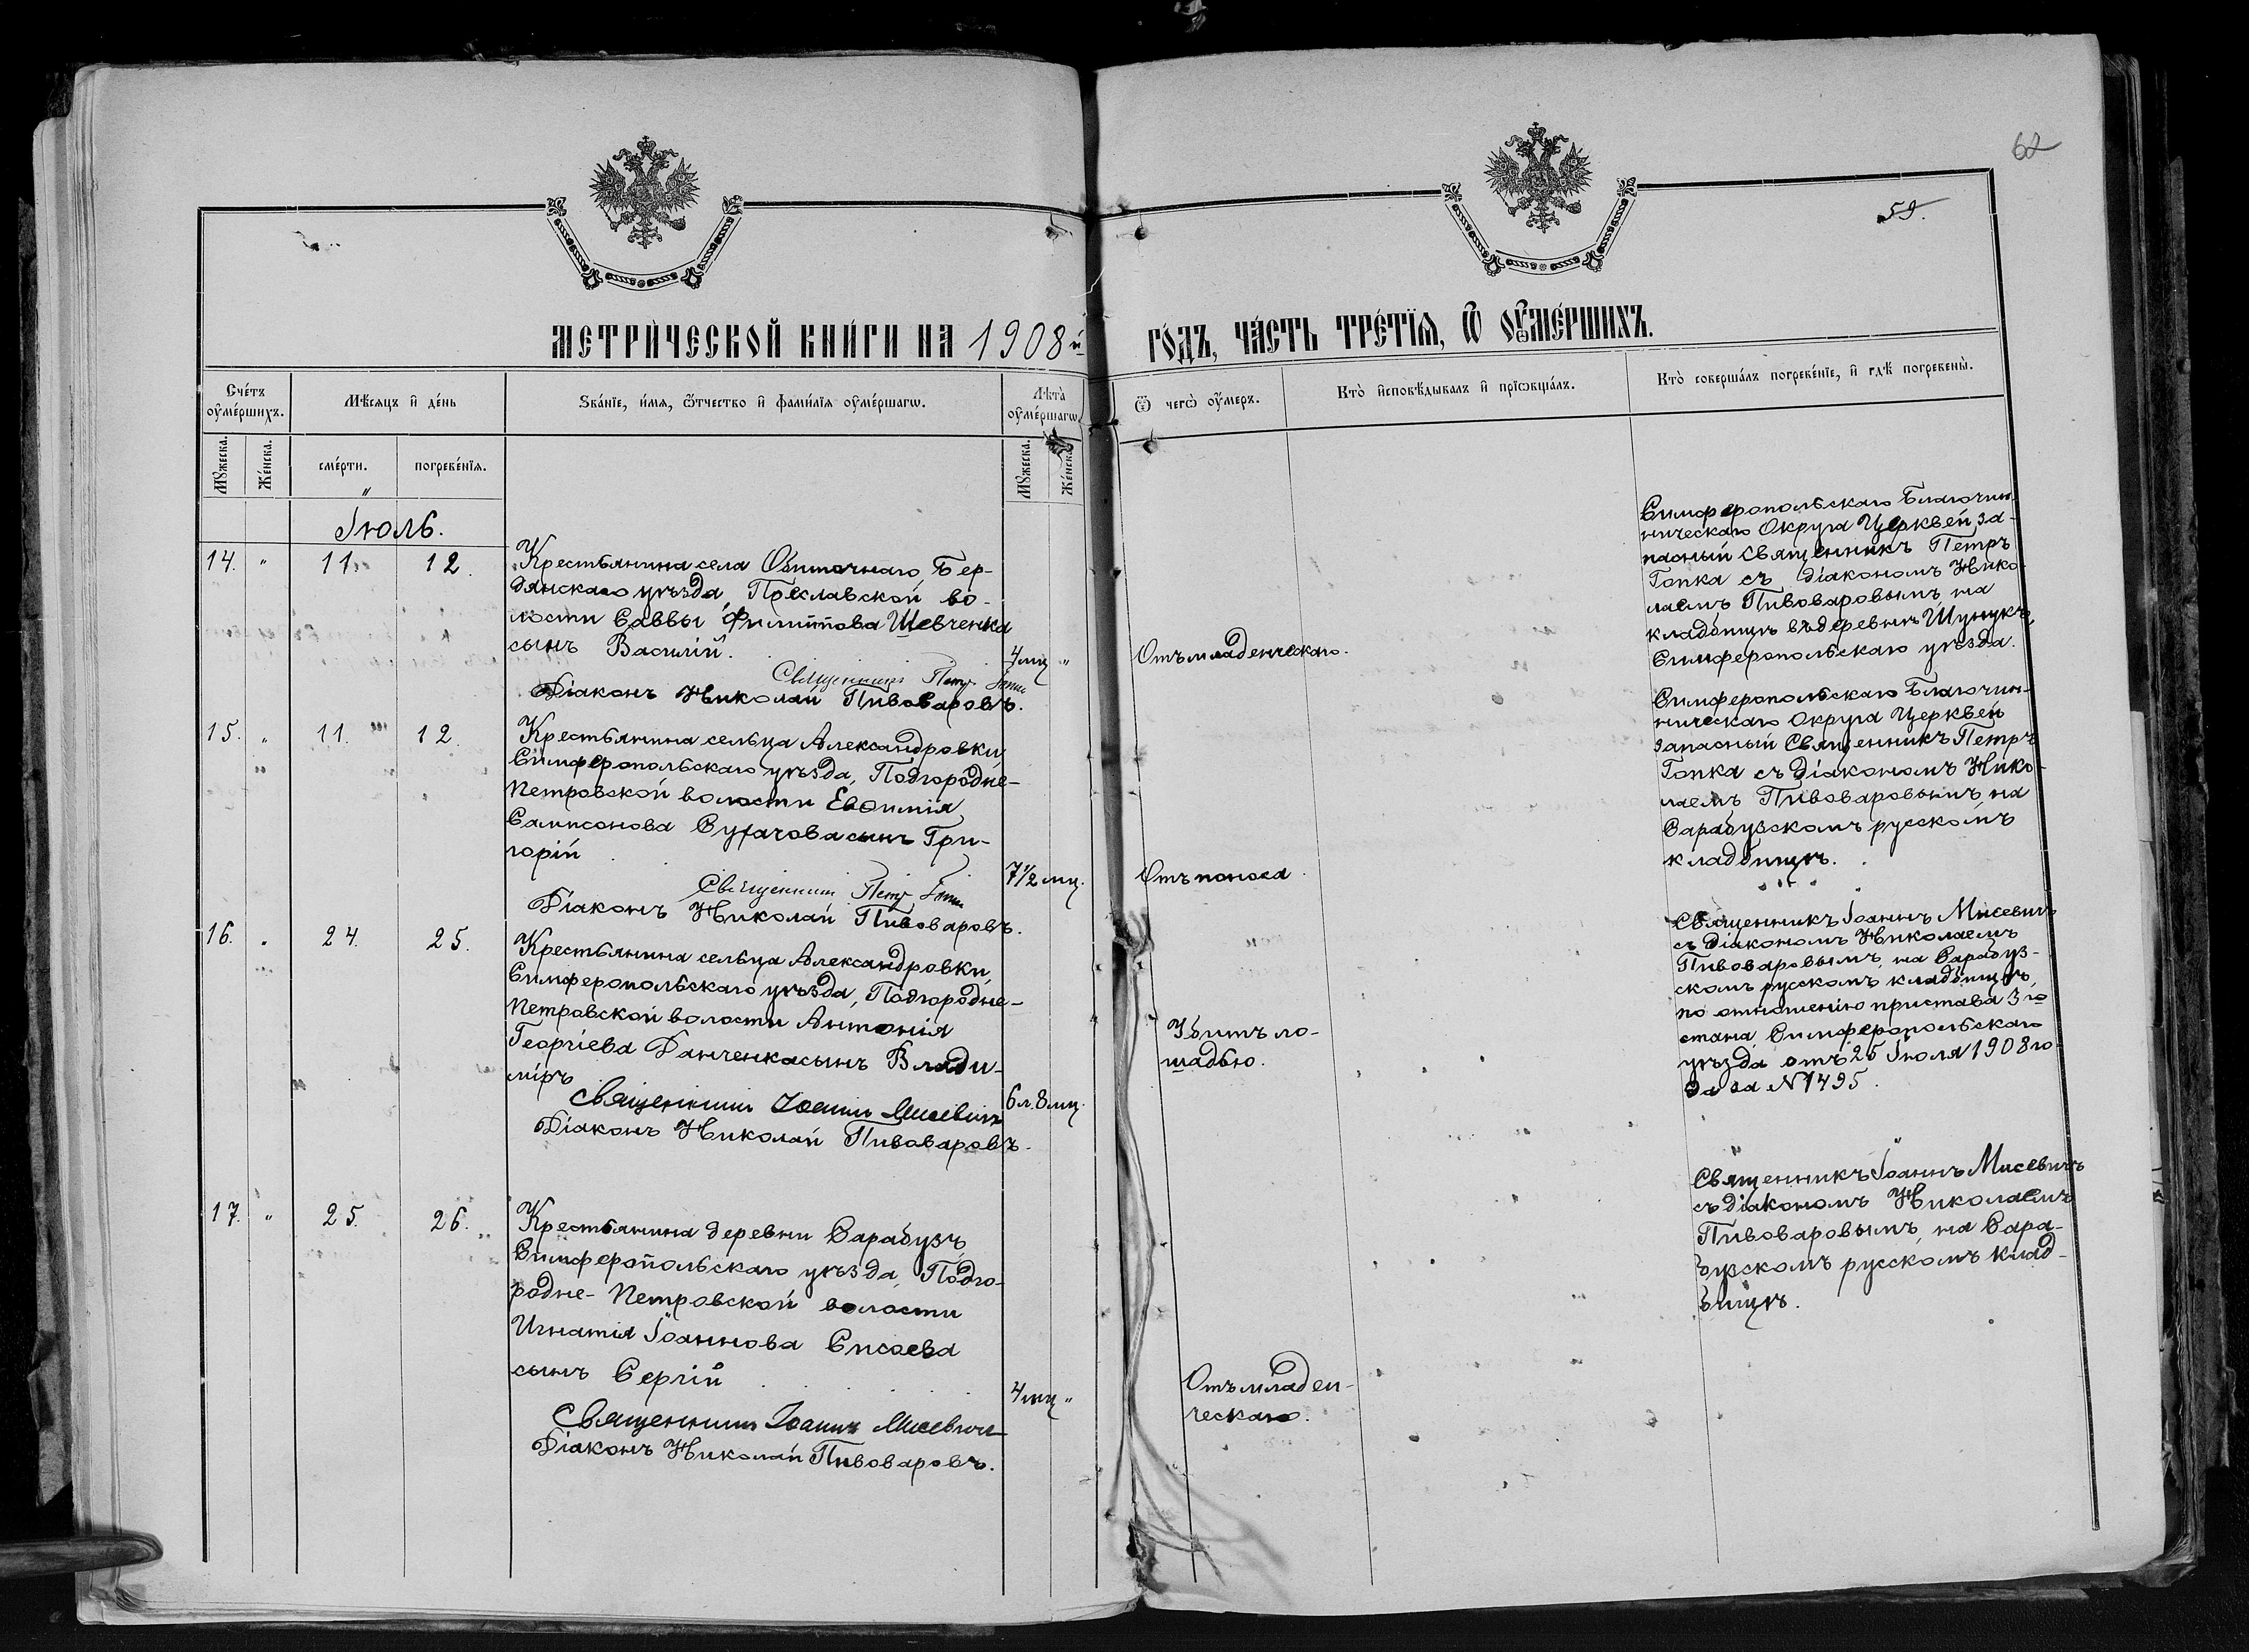 62
59.
МЕТРИ́ЧЕСКОЙ КНИ́ГИ НА 1908й
ГО́ДЪ, ЧА́СТЬ ТРЕ́ТЇѦ, Ѿ ОУ҆МЕ́РШИХЪ.
Сче́тъ оу҆ме́ршихъ.
Мѣ́сѧцъ и҆ де́нь
Зва́нїе, и҆́мѧ, ѻ҆́тчество и҆ фами́лїѧ оу҆ме́ршагѡ.
Лѣ́та̀ оу҆ме́ршагѡ
Ѿ чегѡ̀ оу҆́меръ.
Кто̀ и҆сповѣ́дывалъ и҆ прїѡбща́лъ.
Кто̀ соверша́лъ погребе́нїе, и҆ гдѣ̀ погребены̀.
Мꙋ́жеска.
Же́нска.
сме́рти.
погребе́нїѧ.
Мꙋ́жеска.
Же́нска.
Іюль.
14. " 11. 12.
Крестьянина села Обиточнаго, Бер-
дянскаго уѣзда, Преславской во-
лости Саввы Филиппова Шевченка
сынъ Василій.
4 мц "
Священникъ Петръ
Діаконъ Николай Пивоваровъ.
Отъ младенческаго.
Симферопольскаго Благочин-
ническаго Округа Церквей, за-
пасный Священникъ Петръ
Гопка съ діакономъ Нико-
лаемъ Пивоваровымъ, на
кладбищѣ въ деревнѣ Шунукъ,
Симферопольскаго уѣзда.
15. " 11. 12.
Крестьянина сельца Александровки,
Симферопольскаго уѣзда, Подгородне-
Петровской волости Евѳимія
Сампсонова Сугачова сынъ Гри-
горій
7 1/2 мц.
Священникъ Петръ
Діаконъ Николай Пивоваровъ.
Отъ поноса.
Симферопольскаго Благочин-
ническаго Округа Церквей
запасный Священникъ Петръ
Гопка съ діакономъ Нико-
лаемъ Пивоваровымъ, на
Сарабузскомъ русскомъ
кладбищѣ.
16. " 24. 25.
Крестьянина сельца Александровки,
Симферопольскаго уѣзда, Подгородне-
Петровской волости Антонія
Георгіева Данченка сынъ Влади-
міръ
6 л. 8 мц.
Священникъ Іоаннъ Мисевичъ
Діаконъ Николай Пивоваровъ.
Убитъ ло-
шадью.
Священникъ Іоаннъ Мисевичъ
съ діакономъ Николаемъ
Пивоваровымъ, на Сарабуз-
скомъ русскомъ кладбищѣ,
по отношенію пристава 3 го
стана Симферопольскаго
уѣзда отъ 25 Іюля 1908 го-
да за N 1495.
17. " 25. 26.
Крестьянина деревни Сарабузъ,
Симферопольскаго уѣзда, Подго-
родне-Петровской волости
Игнатія Іоаннова Сисоева
сынъ Сергій
4 мц "
Священникъ Іоаннъ Мисевичъ
Діаконъ Николай Пивоваровъ.
Отъ младен-
ческаго.
Священникъ Іоаннъ Мисевичъ
съ діакономъ Николаемъ
Пивоваровымъ, на Сара-
бузскомъ русскомъ клад-
бищѣ.